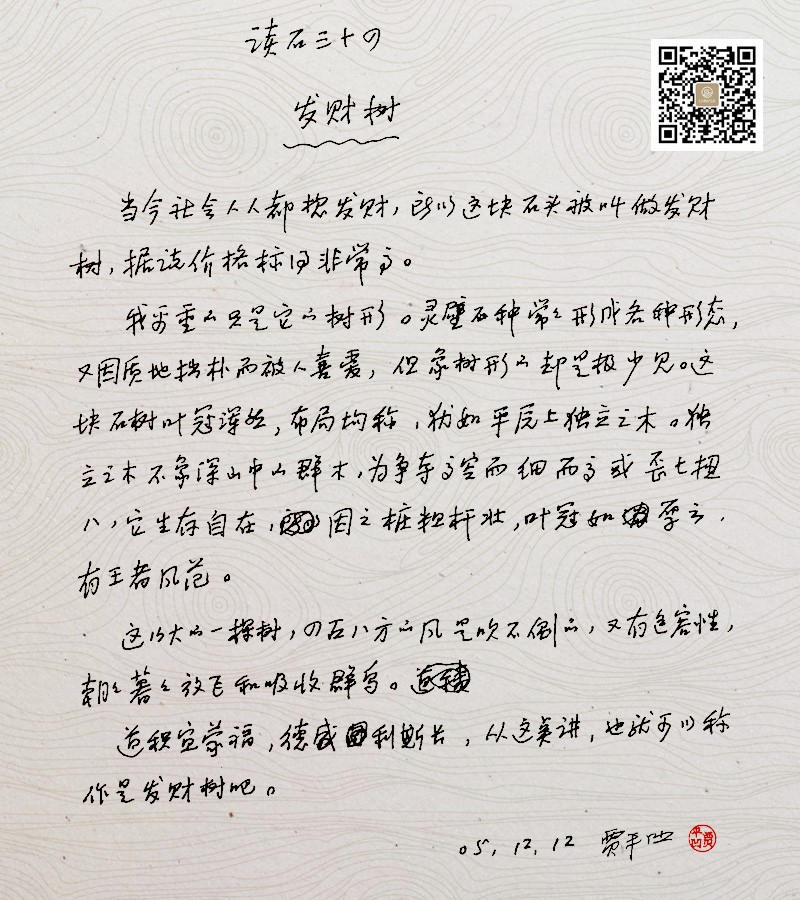 读石三十四
发财树
当今社会人人都想发财，所以这块石头被叫做发财
树，据说价格标得非常高。
我看重的只是它的树形。灵璧石种常常形成各种形态，
又因质地拙朴而被人喜爱，但象树形的却是极少见。这
块石树叶冠深丝，布局均称，犹如平原上独立之木。独
立之木不象深山中的群木，为争夺高空而细而高或歪七扭
八，它生存自在，因之桩粗杆壮，叶冠如厚云，
有王者风范。
这么大的一棵树，四面八方的风是吹不倒的，又有包容性，
朝朝暮暮放飞和吸收群鸟。
道积宜蒙福，德盛利斯长，从这矣讲，也就可以称
作是发财树吧。
05，12，12 贾平凹
贾平凹